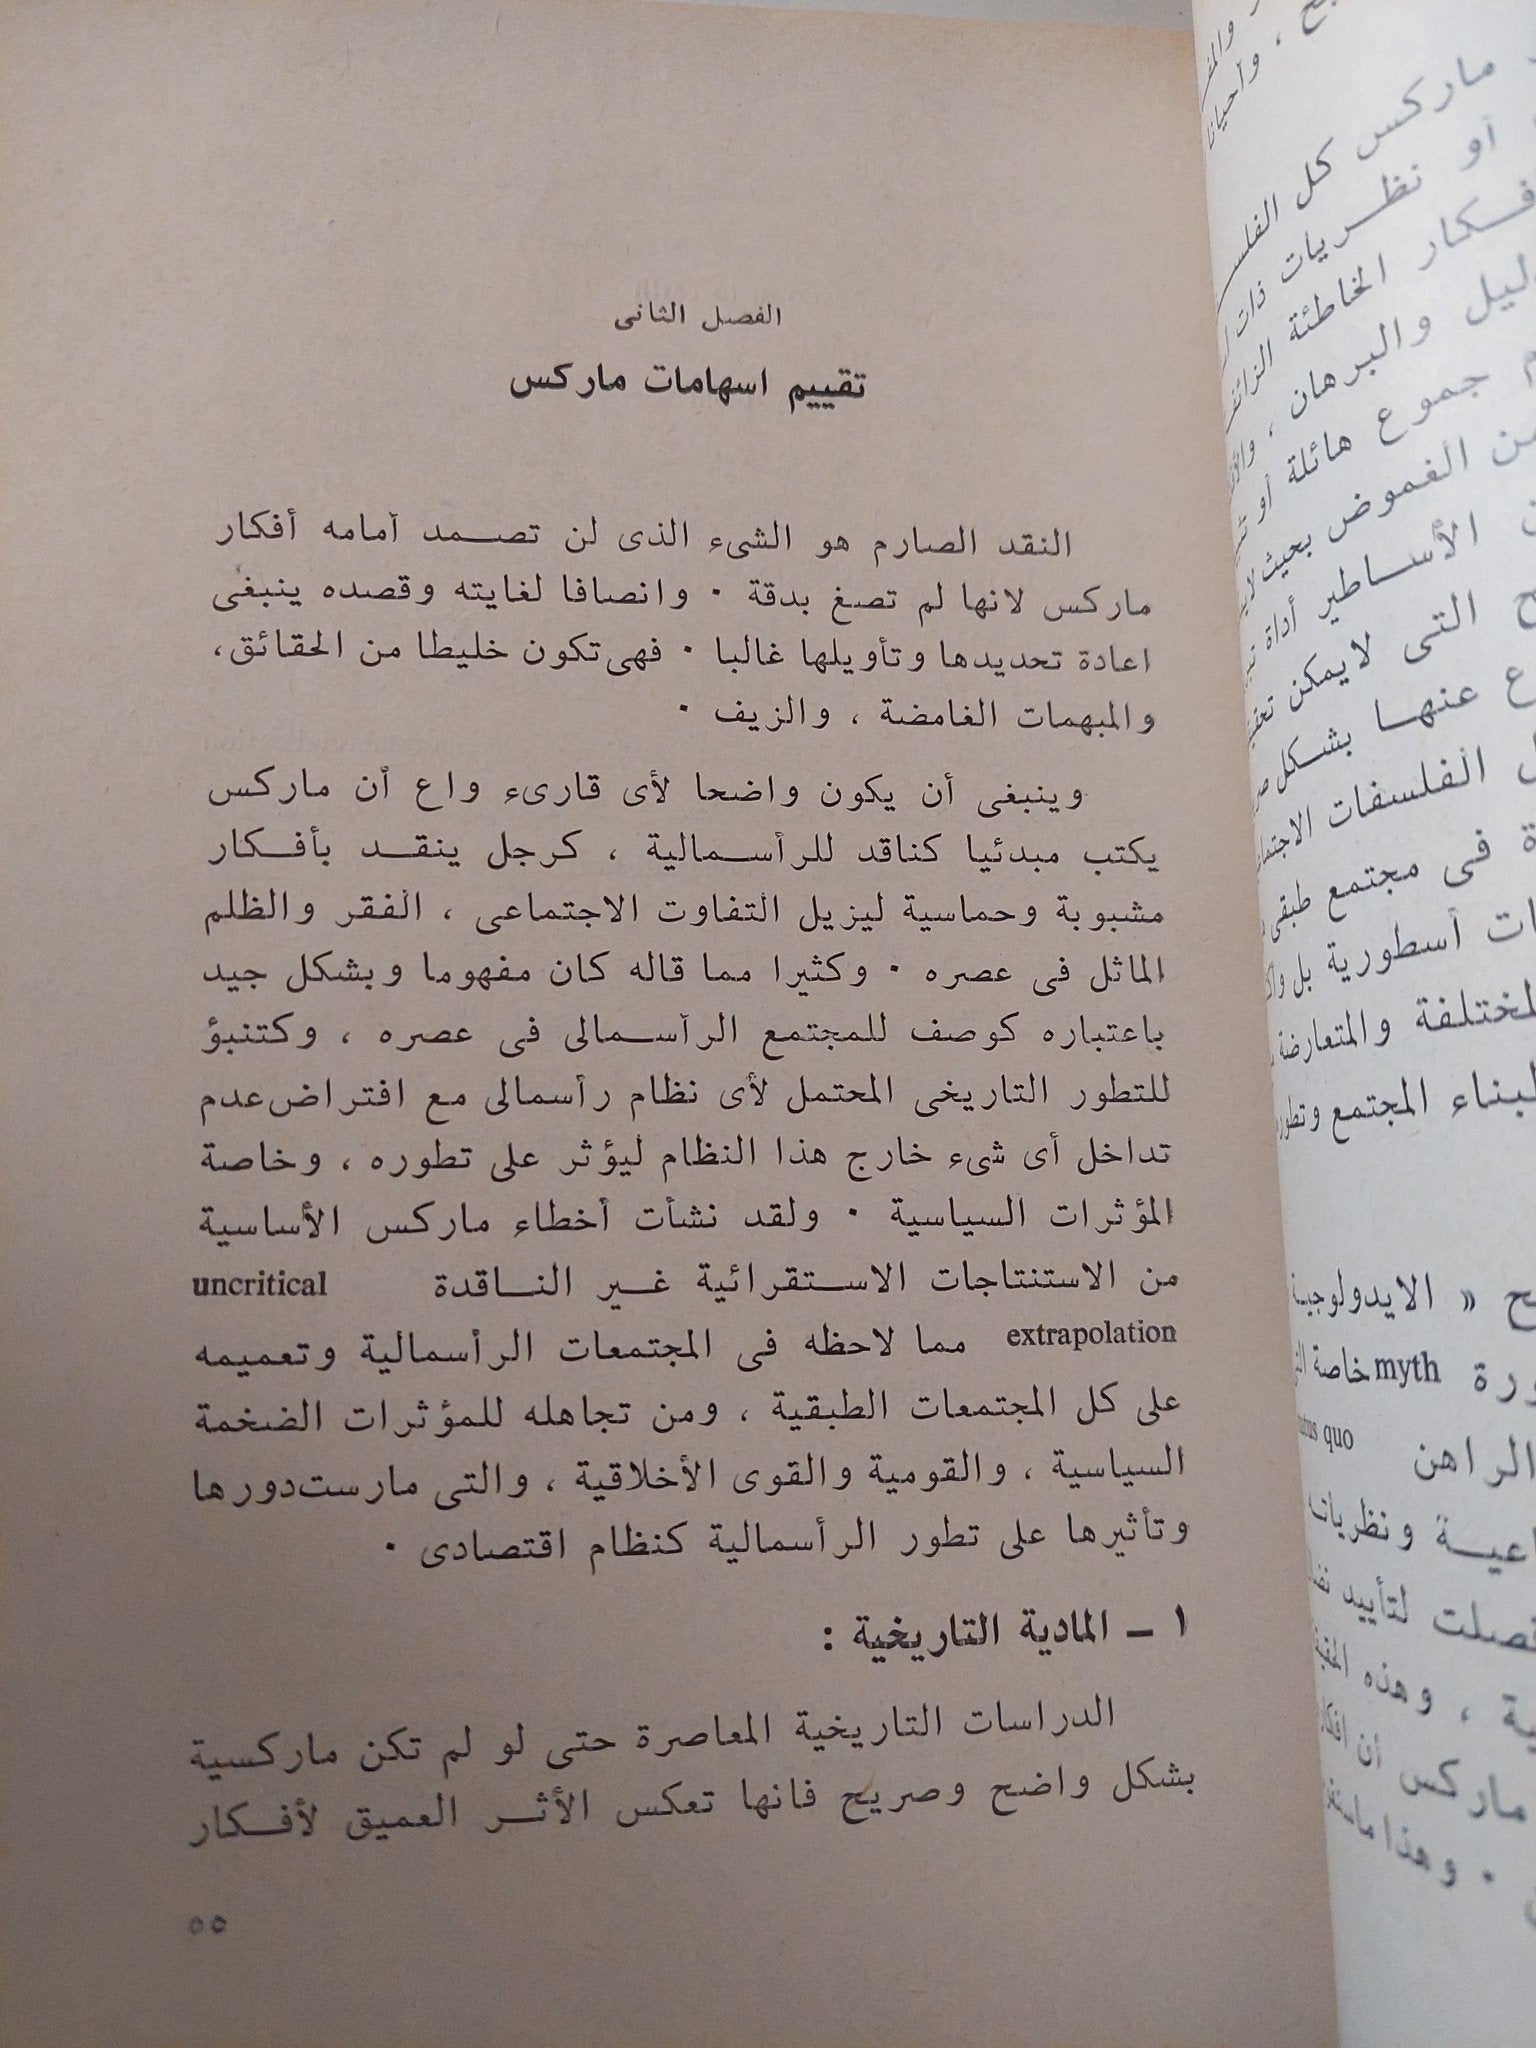 الفصل الثانى
تقييم اسهامات ماركس
النقد الصارم هو الشىء الذى لن تصمد أمامه أفكار
ماركس لانها لم تصغ بدقة · وانصافا لغايته وقصده ينبغى
اعادة تحديدها وتأويلها غالبا · فهى تكون خليطا من الحقائق،
والمبهمات الغامضة ، والزيف ·
وينبغى أن يكون واضحا لأى قارىء واع أن ماركس
يكتب مبدئيا كناقد للرأسمالية ، كرجل ينقد بأفكار
مشبوبة وحماسية ليزيل التفاوت الاجتماعى ، الفقر والظلم
الماثل فى عصره · وكثيرا مما قاله كان مفهوما وبشكل جيد
باعتباره كوصف للمجتمع الرأسمالى فى عصره ، وكتنبؤ
للتطور التاريخى المحتمل لأى نظام رأسمالى مع افتراض عدم
تداخل أى شىء خارج هذا النظام ليؤثر على تطوره ، وخاصة
المؤثرات السياسية · ولقد نشأت أخطاء ماركس الأساسية
من الاستنتاجات الاستقرائية غير الناقدة uncritical
extrapolation مما لاحظه فى المجتمعات الرأسمالية وتعميمه
على كل المجتمعات الطبقية ، ومن تجاهله للمؤثرات الضخمة
السياسية ، والقومية والقوى الأخلاقية ، والتى مارست دورها
وتأثيرها على تطور الرأسمالية كنظام اقتصادى ·
١ – المادية التاريخية :
الدراسات التاريخية المعاصرة حتى لو لم تكن ماركسية
بشكل واضح وصريح فانها تعكس الأثر العميق لأفكار
٥٥
وأحيانا
ماركس كل
أو نظريات ذات
الخاطئة
والبرهان ،
جموع هائلة أو
الغموض بحيث
الأساطير أداة
التى لايمكن
عنها بشكل
الفلسفات
فى مجتمع طبقى
أسطورية بل
والمتعارضة
لبناء المجتمع
« الايدولوجية
myth خاصة
الراهن quo
ونظريات
لتأييد
، وهذه
ماركس أن
· وهذا